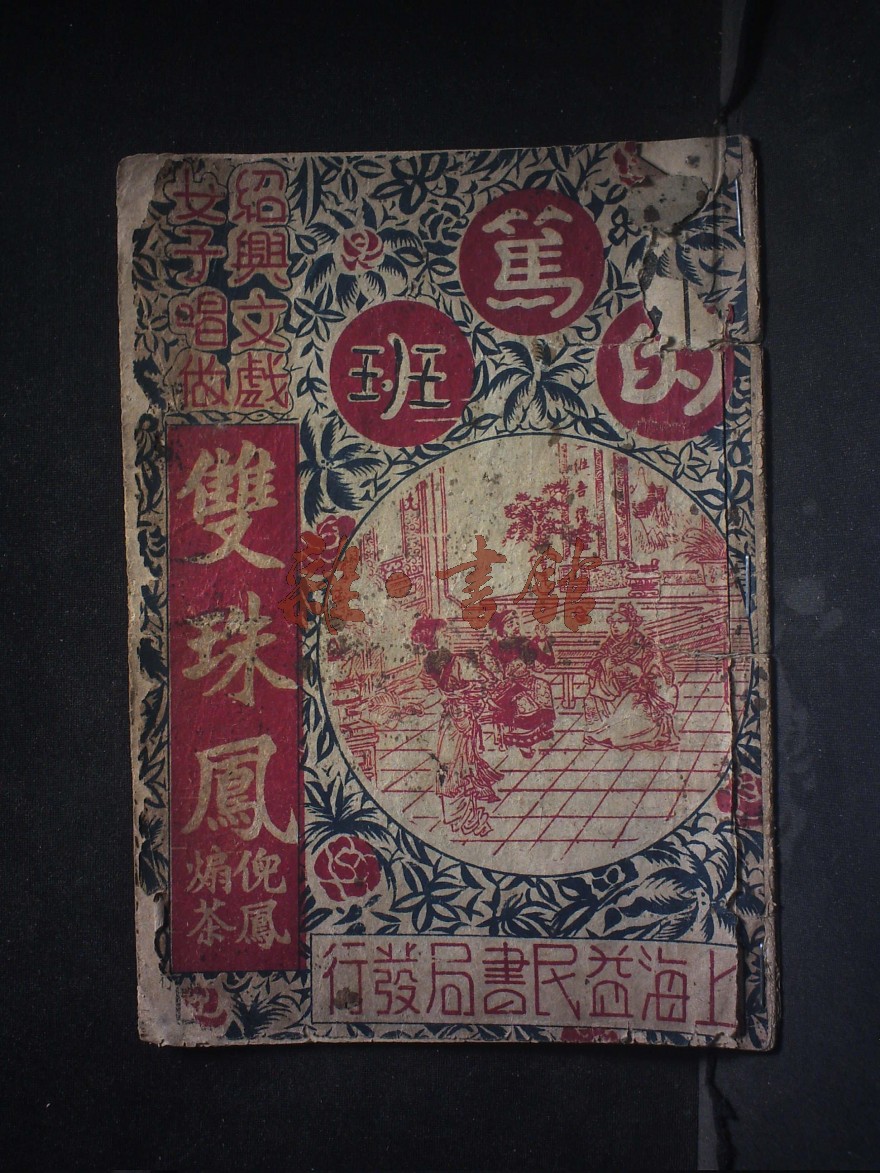 的篤班
紹興文戲
女子唱做
雙珠鳳
倪鳳
煽茶
上海益民書局發行
雜·書館